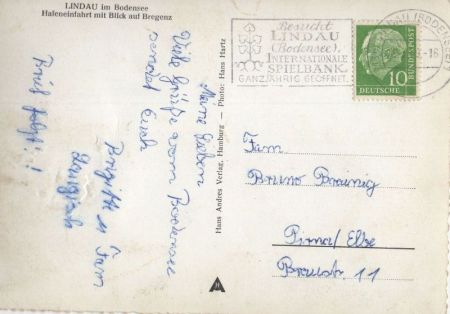 LINDAU im Bodensee
Hafeneinfahrt mit Blick auf Bregenz
Meine Lieben
Viele Grüße vom Bodensee
sendet Euch
u Fam
Brief folgt!
Hans Andres Verlag, Hamburg — Photo: Hans Hartz
Besucht
LINDAU
(Bodensee),
INTERNATIONALE
SPIELBANK
GANZJÄHRIG GEÖFFNET.
LINDAU (BODENSEE)
10
BUNDESPOST
DEUTSCHE
Fam
Bruno Braunig
Pirna/Elbe
Braustr. 11
A